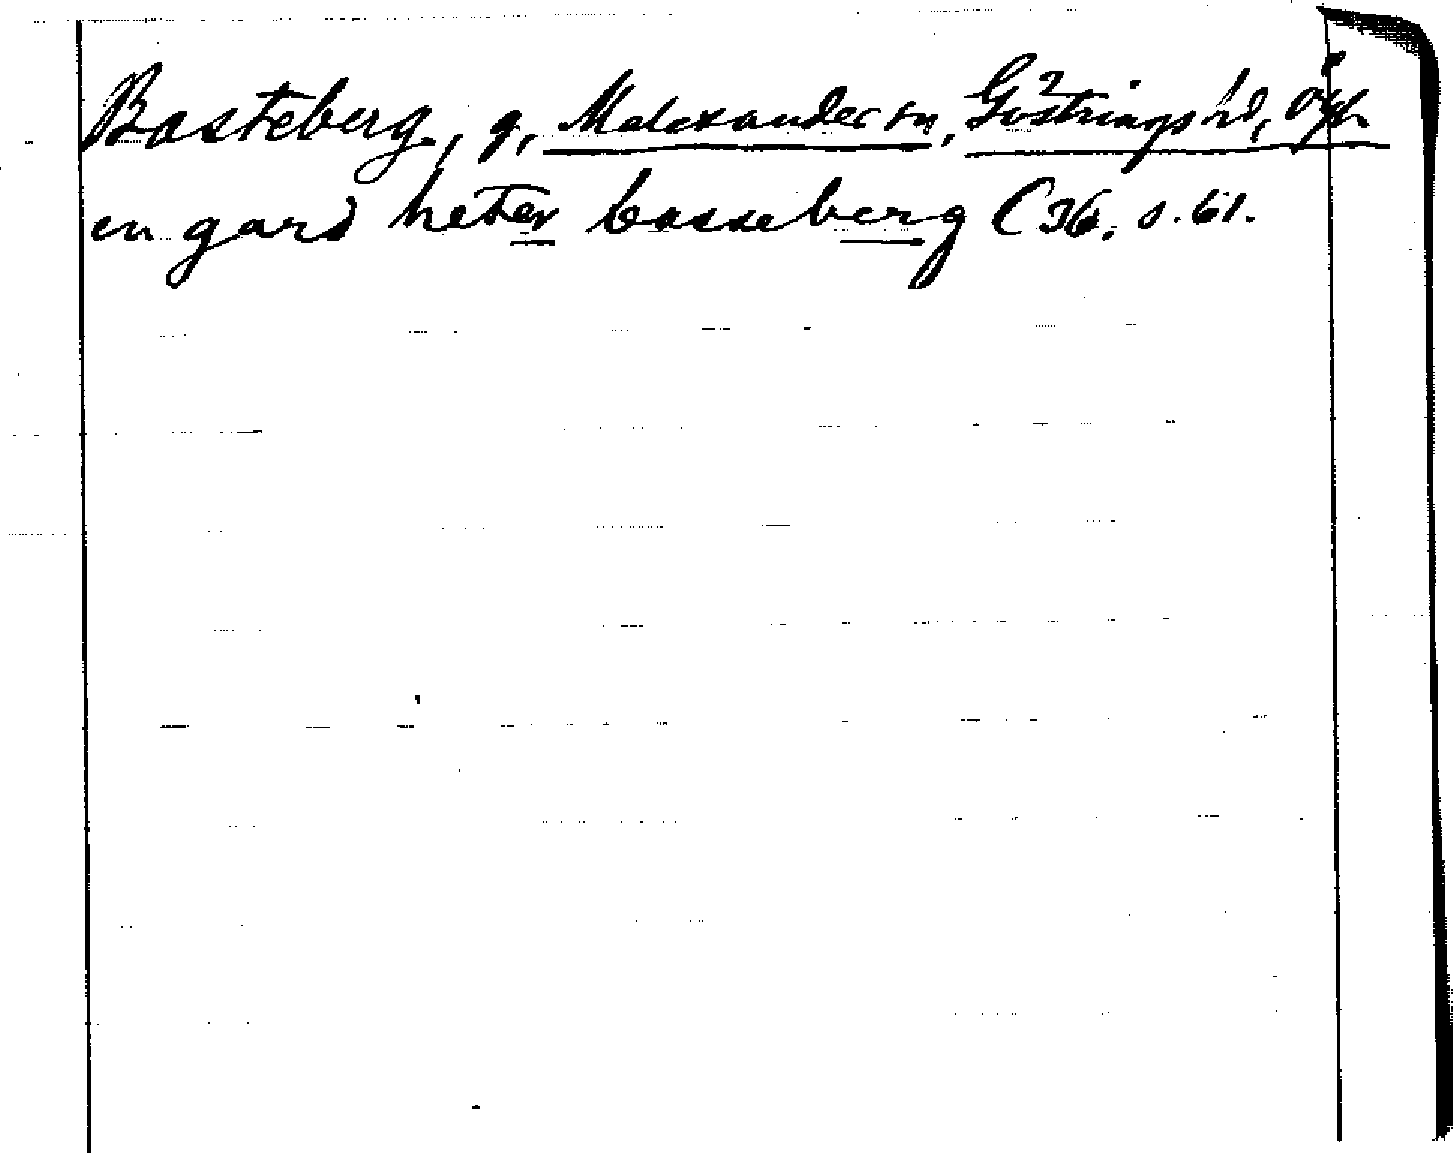 Basteberg, g, Malexander sn, Göstrings hd, Ög.
en gard heter basseberg C 36. s. 61.